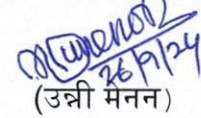 26/9/24
(उन्नी मेनन)